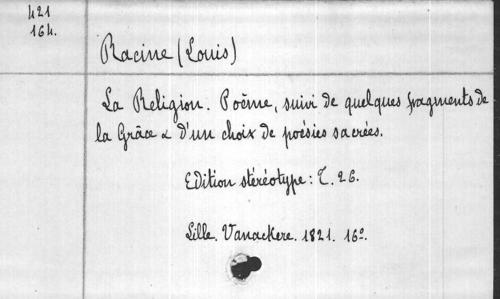 421
164.
Racine (Louis)
La Religion. Poême, suivi de quelques fragments de
la Grâce & d'un choix de poésies sacrées.
Edition stéréotype: T. 26.
Lille. Vanackere. 1821. 16º.